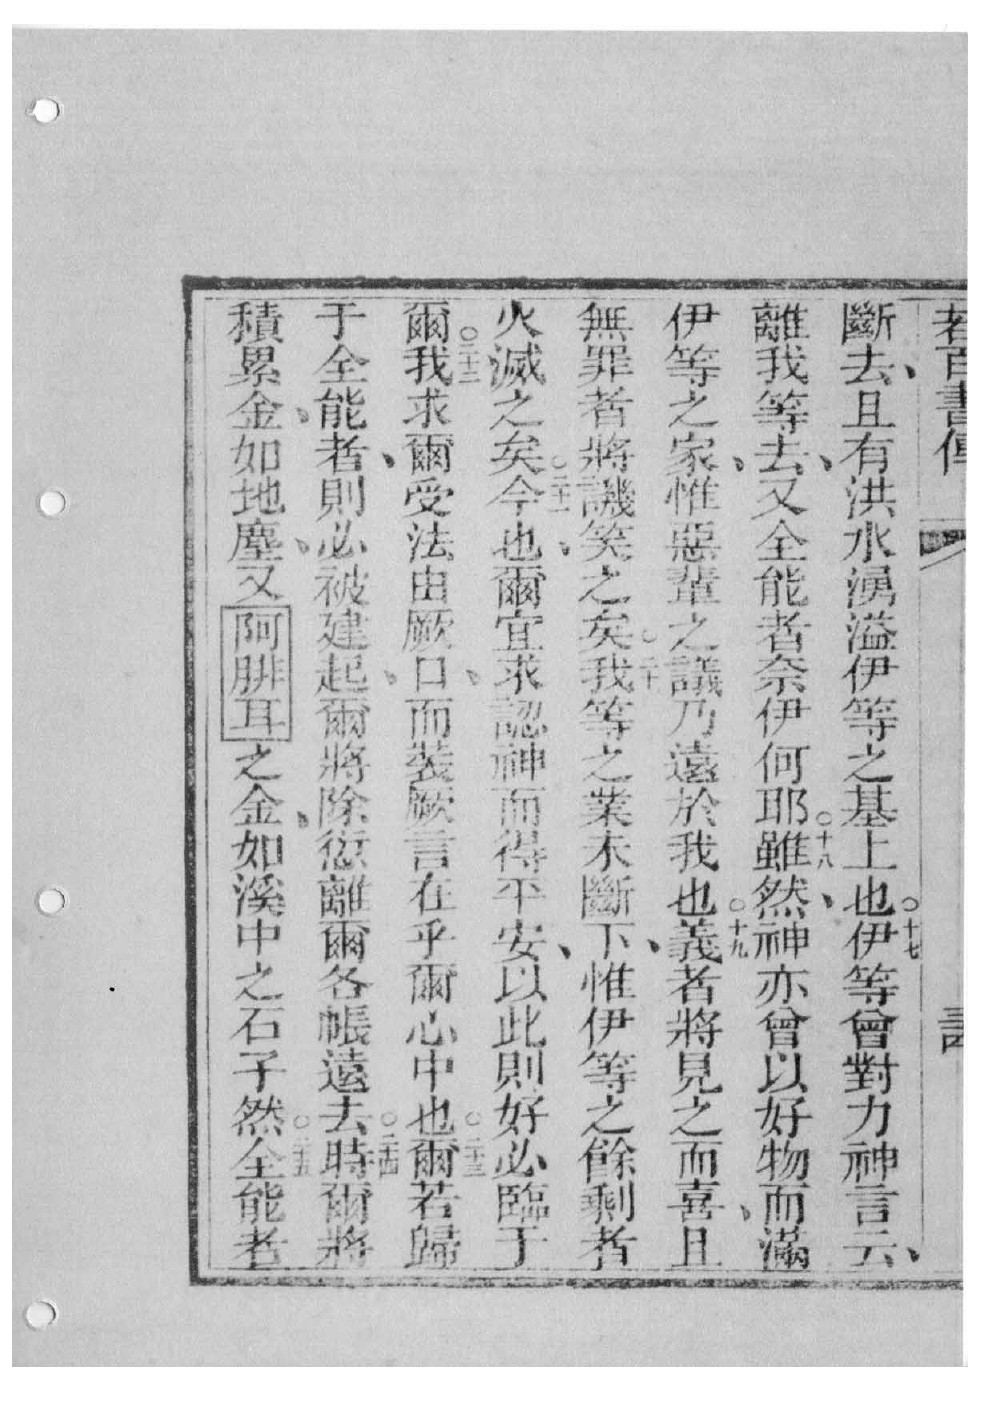 若百書傳
斷去、且有洪水湧溢伊等之基上也○十七伊等曾對力神言云、
離我等去、又全能者奈伊何耶○十八雖然、神亦曾以好物而滿
伊等之家、惟惡輩之議乃遠於我也○十九義者將見之而喜、且
無罪者將譏笑之矣○二十我等之業未斷下、惟伊等之餘剩者
火滅之矣○二十一今也、爾宜求認神而得平安、以此則好必臨于
爾○二十二我求爾受法由厥口、而裝厥言在乎爾心中也○二十三爾若歸
于全能者、則必被建起、爾將除愆離爾各帳遠去○二十四時爾將
積累金、如地塵、又阿腓耳之金、如溪中之石子然○二十五全能者